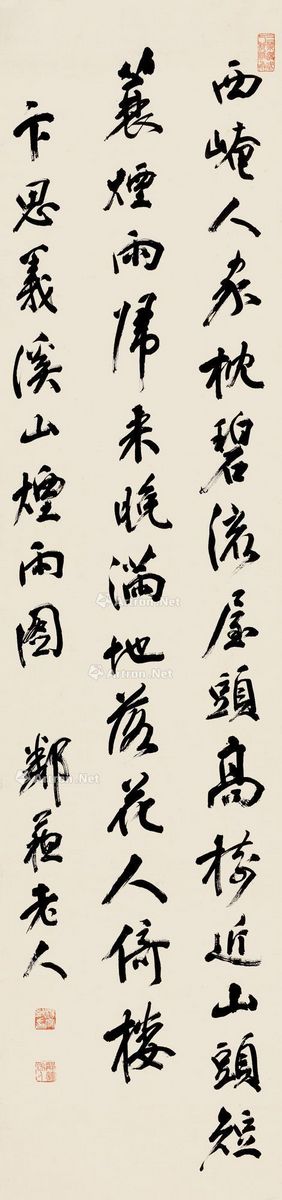 西崦人家枕碧流屋頭高樹近山頭短
蓑煙雨歸来晚滿地落花人倚樓
卞思義溪山煙雨圖 鄰蘇老人
Artron.Net
Artron.Net